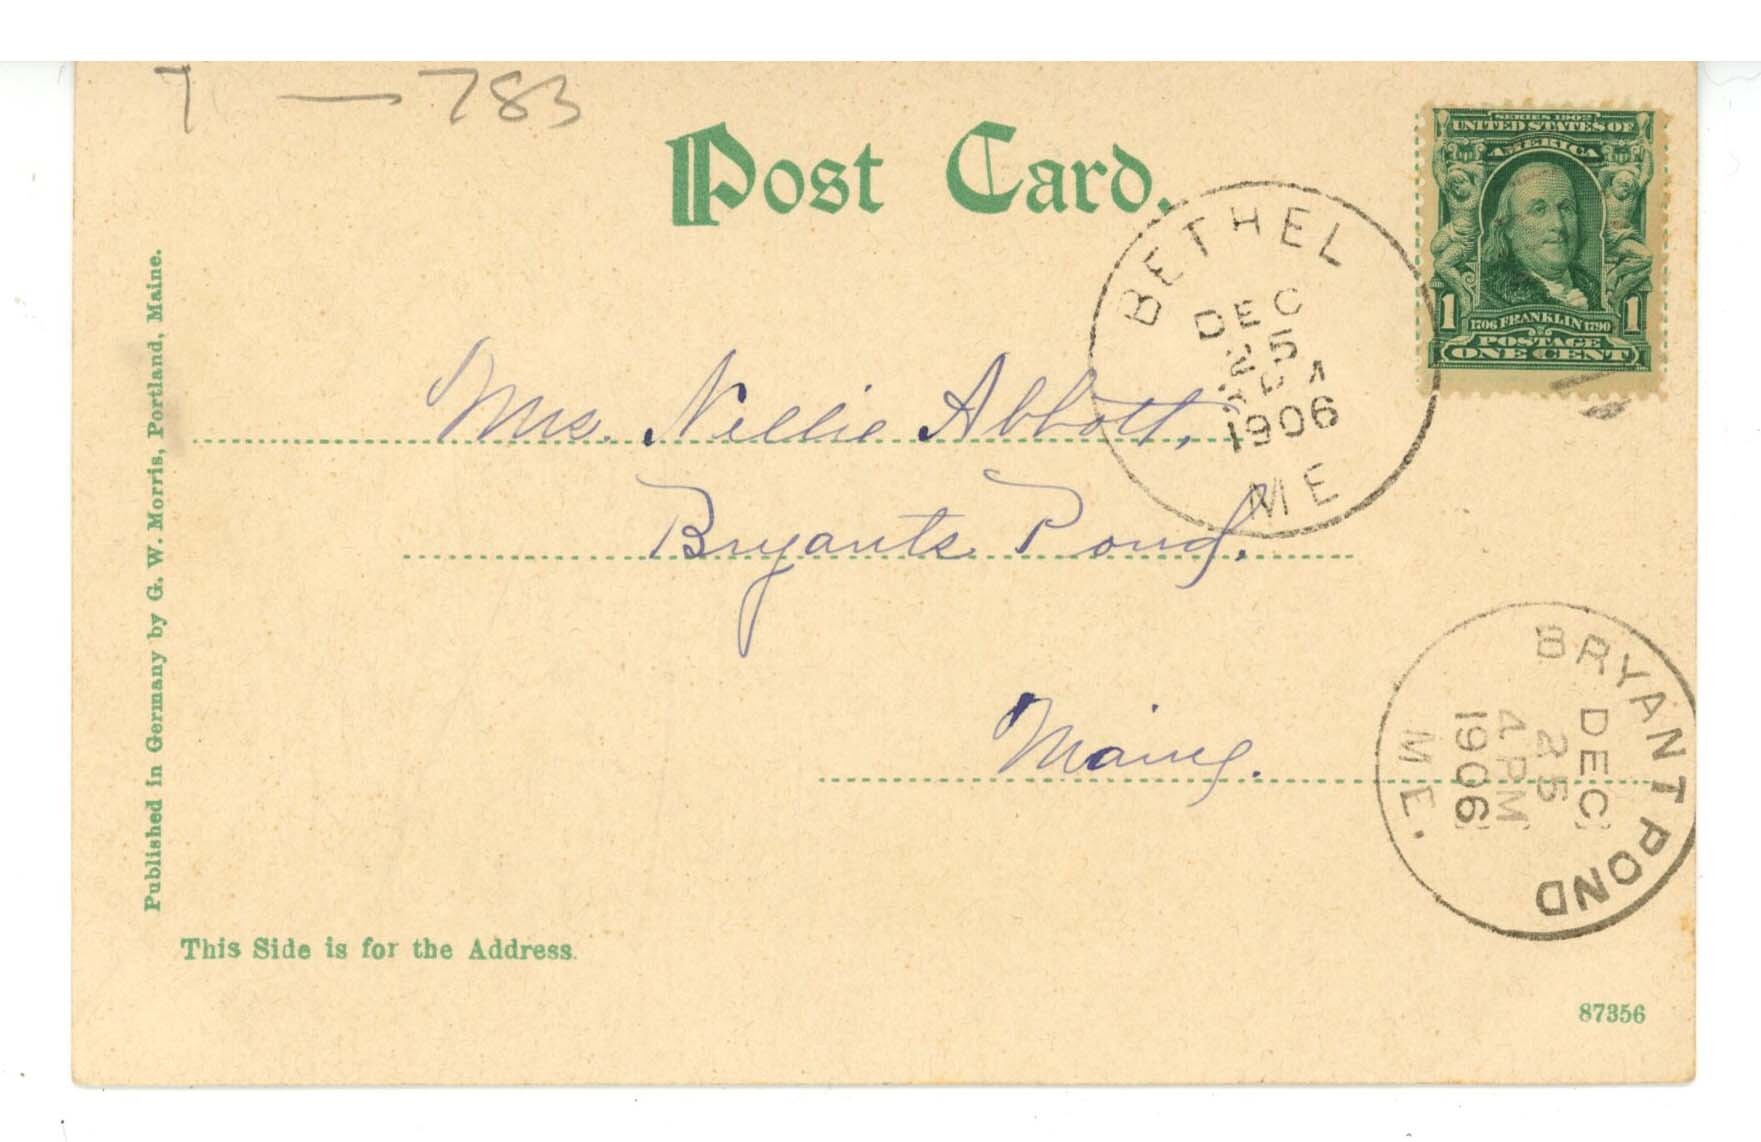 7 — 783
Post Card.
SERIES 1902
UNITED STATES OF
AMERICA
1 1
1706 FRANKLIN 1790
POSTAGE
ONE CENT
BETHEL
DEC
25
1906
ME
Mrs. Nellie Abbott,
Bryants Pond,
Maine.
BRYANT POND
DEC
25
4 PM
1906
ME.
Published in Germany by G. W. Morris, Portland, Maine.
This Side is for the Address.
87356